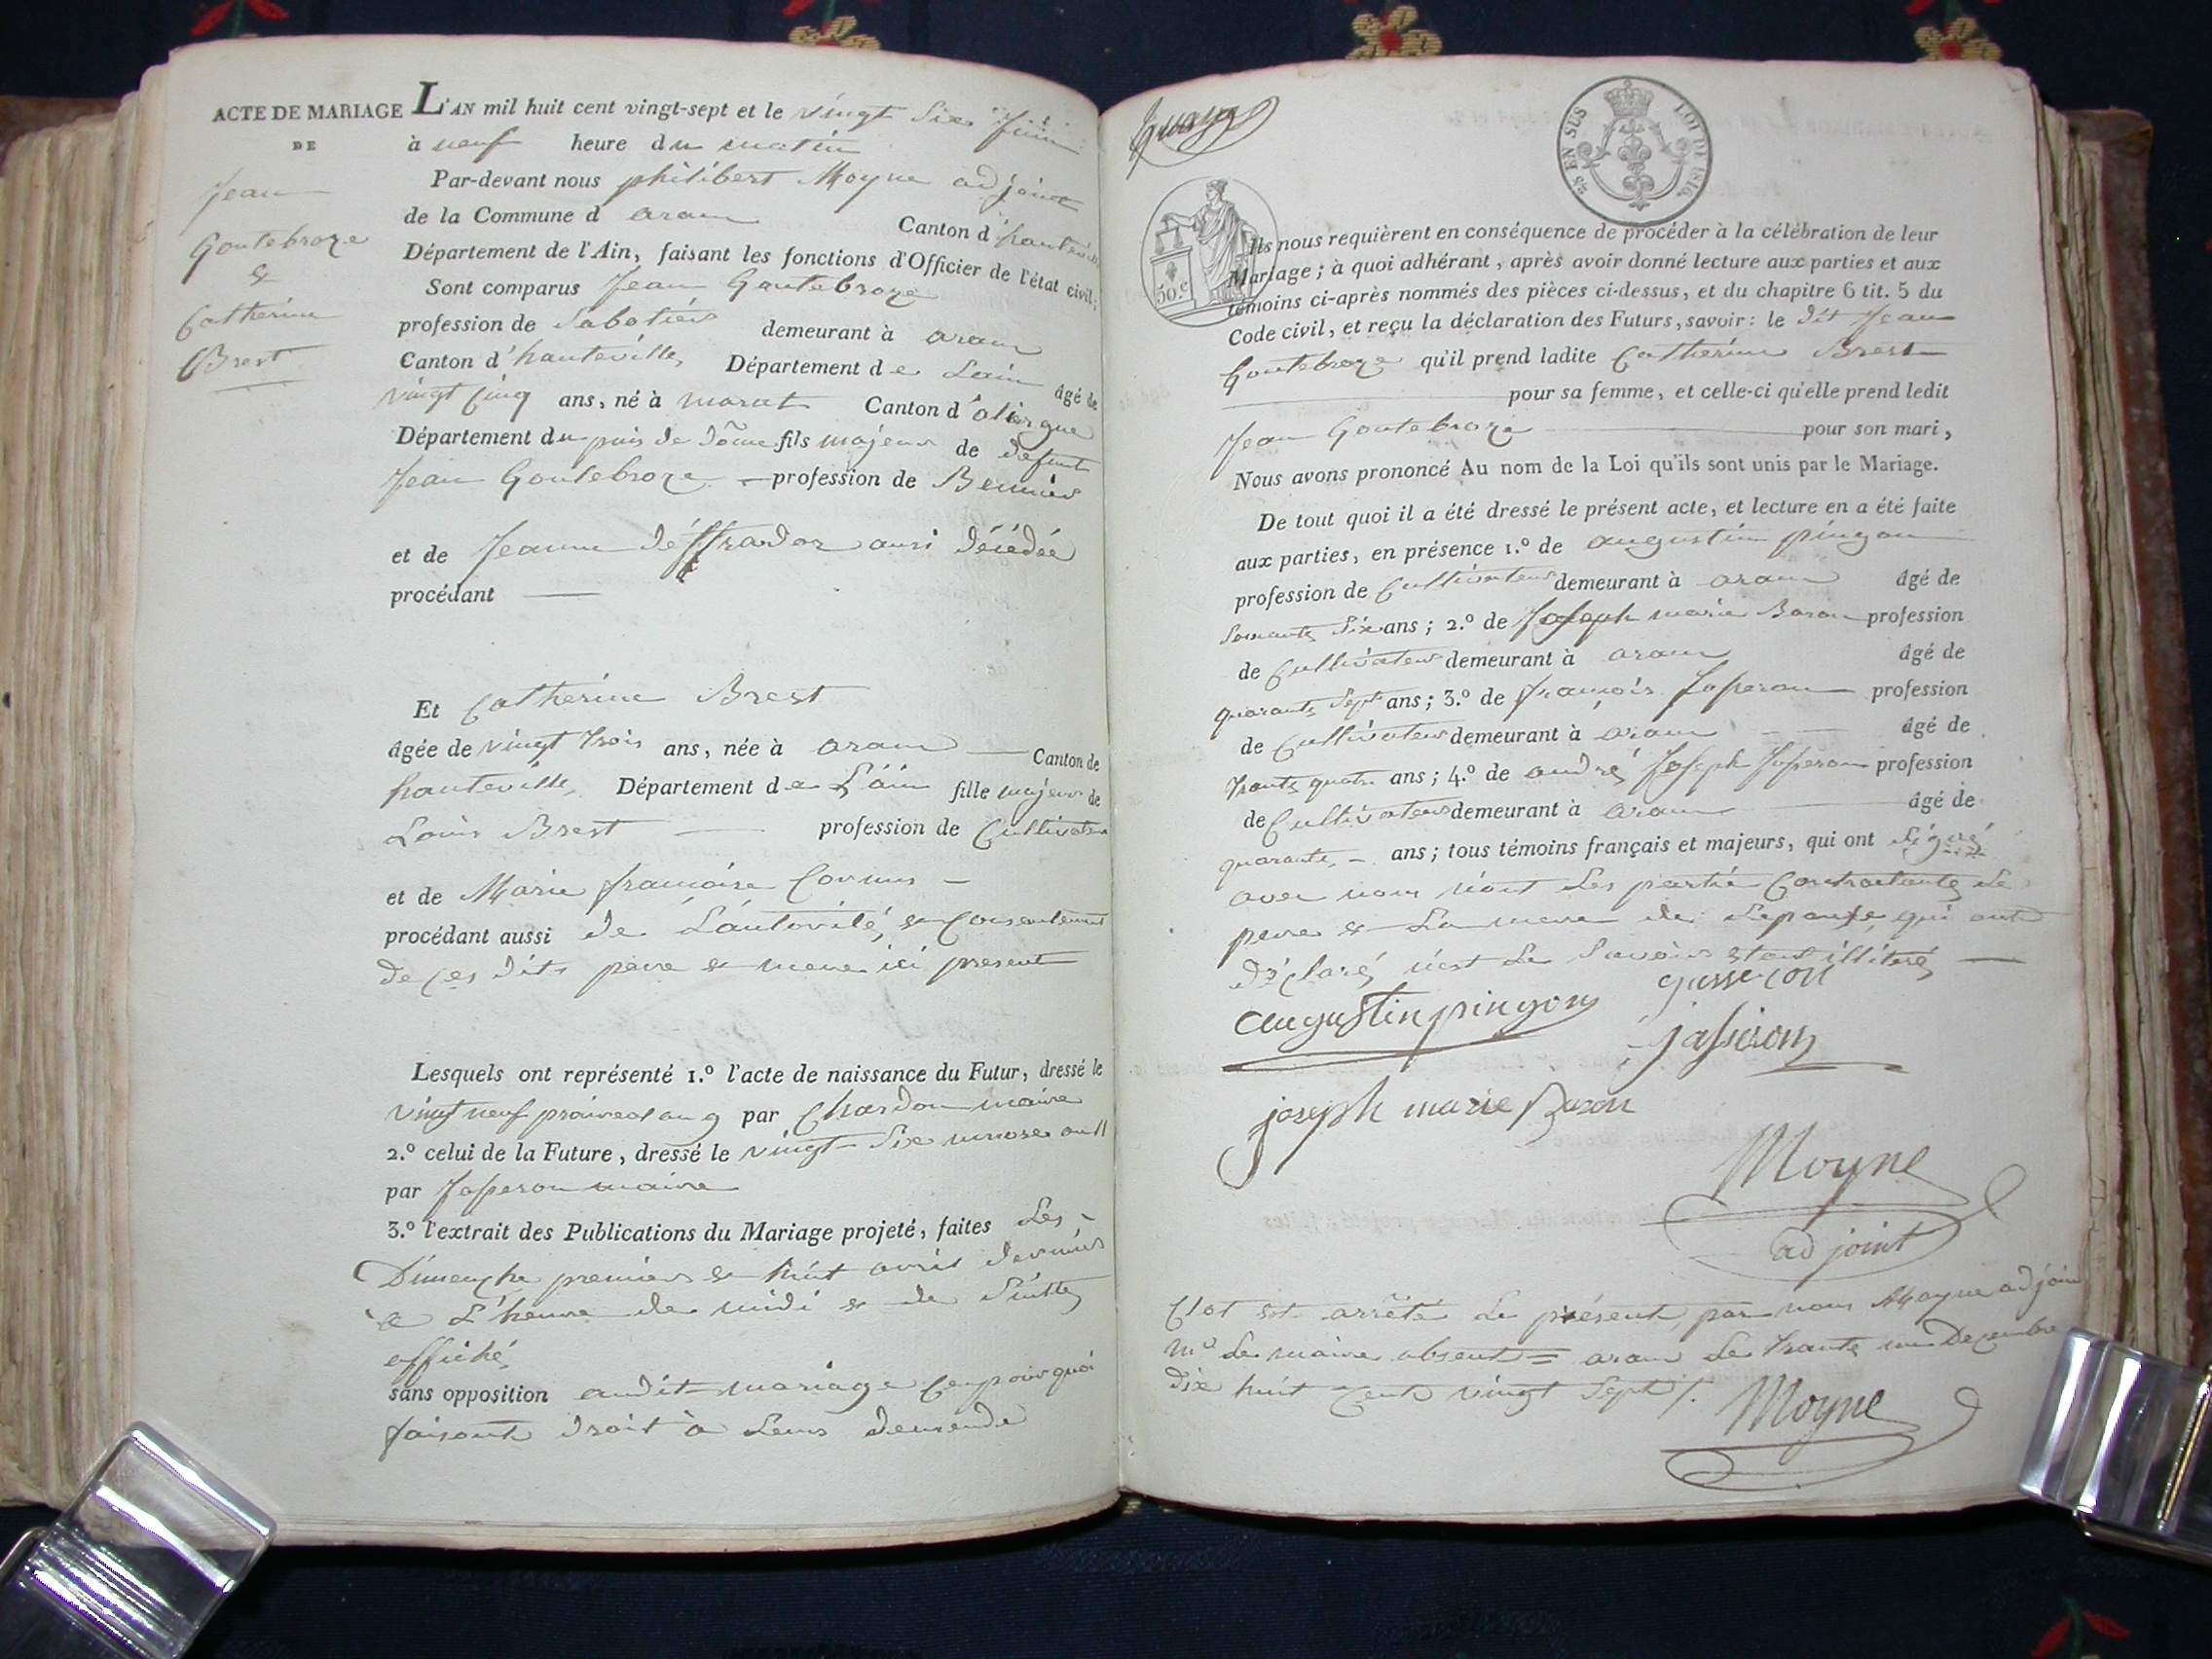 ACTE DE MARIAGE
DE
Jean
Goutebroze
&
Catherine
Brest
L'AN mil huit cent vingt-sept et le vingt Six Juin
à neuf heure du matin
Par-devant nous philibert Moyne adjoint
de la Commune d aran Canton d'hauteville
Département de l'Ain, faisant les fonctions d'Officier de l'état civil;
Sont comparus Jean Goutebroze
profession de Sabotier demeurant à aran
Canton d'hauteville Département de Lain âgé de
vingt Cinq ans, né à marat Canton d'oliergue
Département du puis de dôme fils majeur de defunt
Jean Goutebroze profession de
et de Jeanne ausi décédée
procédant
Et Catherine Brest
âgée de vingt trois ans, née à aran Canton de
hauteville, Département de L'ain fille majeur de
Louis Brest profession de Cultivateur
et de Marie francoise Cornus
procédant aussi de L'autorité, & Consentement
de ces dits pere & mere ici present
Lesquels ont représenté 1.º l'acte de naissance du Futur, dressé le
vingt neuf praireal an 9 par Chardon maire
2.º celui de la Future, dressé le vingt Six nivose an 11
par Jasseron maire
3.º l'extrait des Publications du Mariage projeté, faites Les
Dimenche premier & huit avril dernier
a L'heure de midi & de Suitte
affiché
sans opposition audit mariage Cenpourquoi
faisant droit à Leur demende
25 EN SUS LOI DE 1816
50.c
Ils nous requièrent en conséquence de procéder à la célébration de leur
Mariage; à quoi adhérant, après avoir donné lecture aux parties et aux
témoins ci-après nommés des pièces ci-dessus, et du chapitre 6 tit. 5 du
Code civil, et reçu la déclaration des Futurs, savoir: le dit Jean
Goutebroze qu'il prend ladite Catherine Brest
pour sa femme, et celle-ci qu'elle prend ledit
Jean Goutebroze pour son mari,
Nous avons prononcé Au nom de la Loi qu'ils sont unis par le Mariage.
De tout quoi il a été dressé le présent acte, et lecture en a été faite
aux parties, en présence 1.º de augustin pingon
profession de Cultivateur demeurant à aran âgé de
Soixante Six ans; 2.º de Joseph marie Baron profession
de Cultivateur demeurant à aran âgé de
quarante Sept ans; 3.º de françois Jasseron profession
de Cultivateur demeurant à aran âgé de
trante quatre ans; 4.º de andré Joseph Jasseron profession
de Cultivateur demeurant à aran âgé de
quarante ans; tous témoins français et majeurs, qui ont Signé
avec nous nont Les partie Contractante Le
pere & La mere de Lepouse, qui ont
Déclaré, n'est Le Savoir étant illiteré
augustin pingon
jasseron
joseph marie Baron
Moyne
adjoint
Clot est arrêté Le présent, par nous Moyne adjoin
Mr Le maire absent = aran Le trante un Decembre
dix huit Cents vingt Sept /.
Moyne